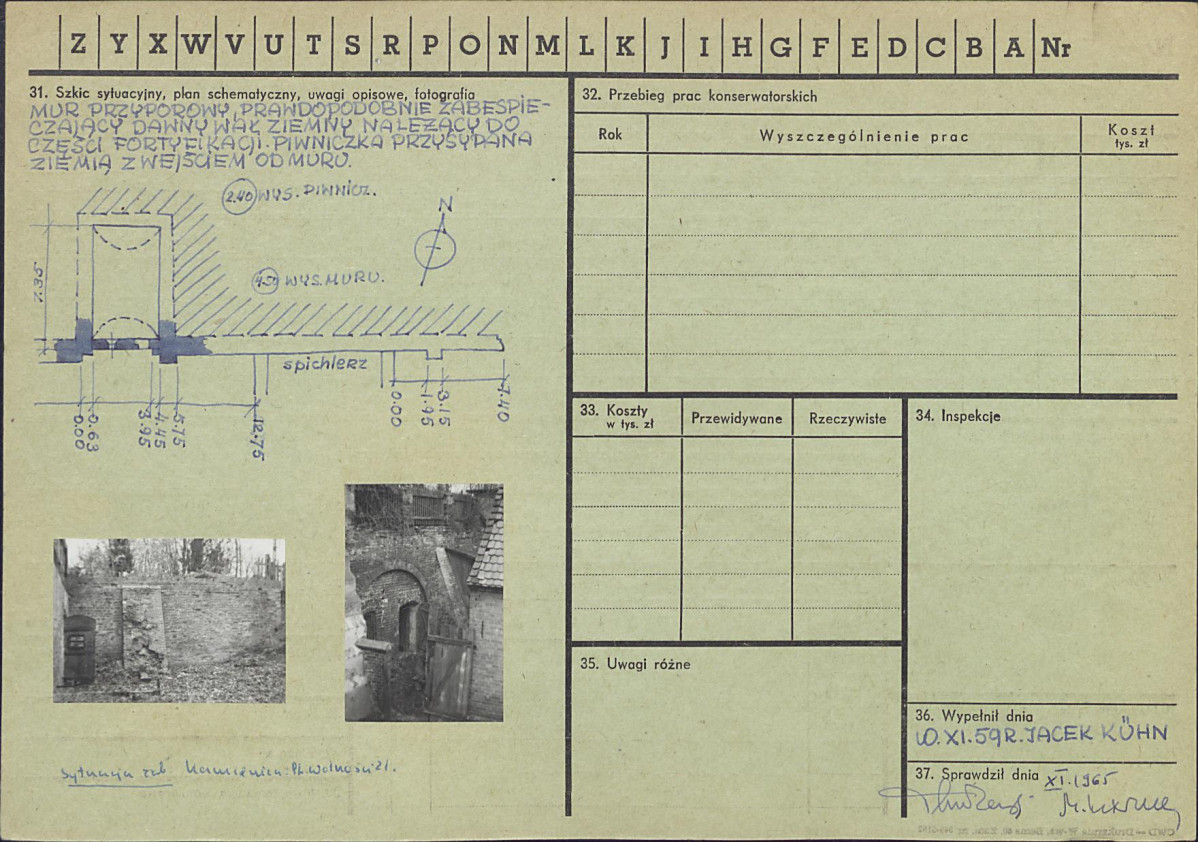 Z Y X W V U T S R P O N M L K J I H G F E D C B A Nr
31. Szkic sytuacyjny, plan schematyczny, uwagi opisowe, fotografia
MUR PRZYPOROWY PRAWDOPODOBNIE ZABESPIE-
CZAJĄCY DAWNY WAŁ ZIEMNY NALEŻĄCY DO
CZĘŚCI FORTYFIKACJI. PIWNICZKA PRZYSYPANA
ZIEMIĄ Z WEJŚCIEM OD MURU.
2.40 WYS. PIWNICZ.
N
WYS. MURU.
7.35
spichlerz
0.00
0.63
3.95
4.45
5.75
12.75
0.00
1.95
3.15
7.40
sytuacja zob. Kamienica Pl. Wolności 21.
32. Przebieg prac konserwatorskich
Rok
Wyszczególnienie prac
Koszt
tys. zł
33. Koszty
w tys. zł
Przewidywane
Rzeczywiste
34. Inspekcje
35. Uwagi różne
36. Wypełnił dnia
10.XI.59R. JACEK KÜHN
37. Sprawdził dnia XI.1965